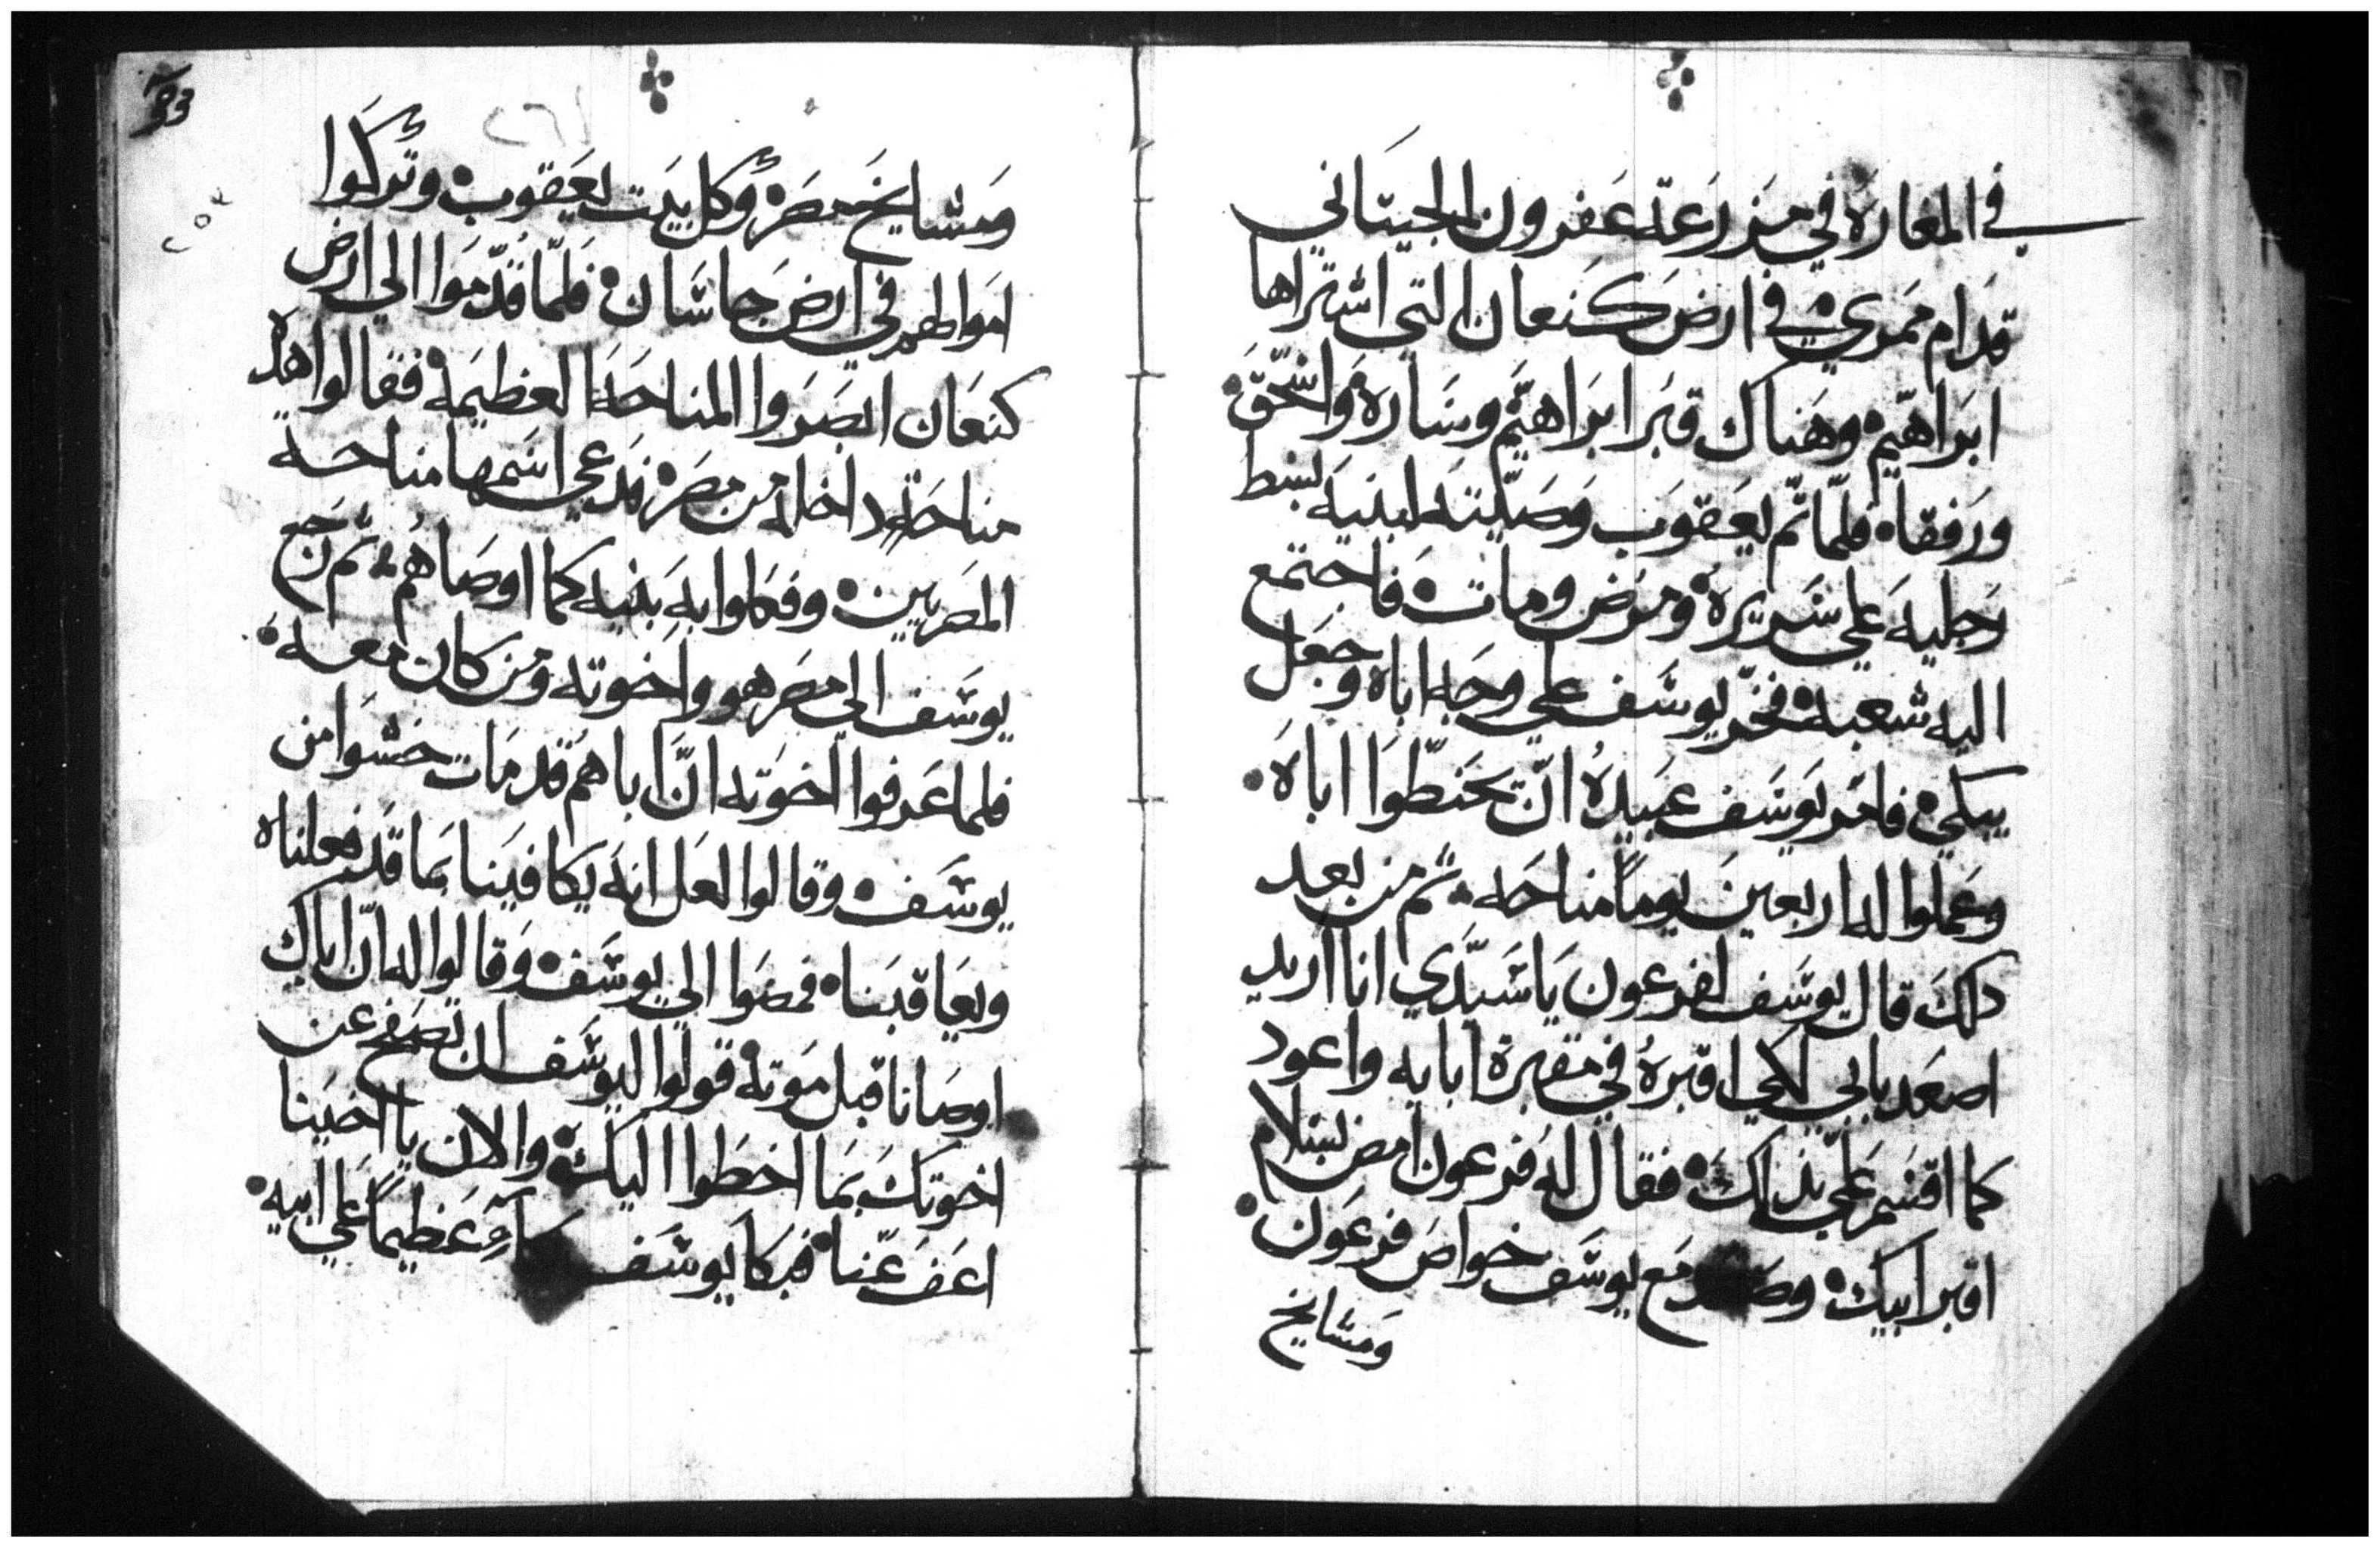 في المغاره في مزرعة عفرون الجيتاني
قدام ممري في ارض كنعان التي اشتراها
ابراهيم وهناك قبر ابراهيم وساره واسحق
ورفقاه فلما تم يعقوب وصيته لبنيه بسط
رجليه علي سريره ومرض ومات فاجتمع
اليه شعبه فخر يوسف علي وجه اباه وجعل
يبكي فامر يوسف عبيده ان يحنطوا اباه
وعملوا له اربعين يوما مناحه ثم من بعد
دلك قال يوسف لفرعون يا سيدي انا اريد
اصعد بابي لكي اقبره في مقبرة ابايه واعود
كما اقسم علي بذلك فقال له فرعون امض بسلام
اقبر ابيك وصعد مع يوسف خواص فرعون
ومشايخ
33
٢٦١
٢٥٢
ومشايخ مصر وكل بيت يعقوب وتركوا
اموالهم في ارض جاشان فلما قدموا الي ارض
كنعان ابصروا المناحه العظيمه فقالوا هده
مناحة داخله من مصر فدعي اسمها مناحه
المصريين وفعلوا به بنيه كما اوصاهم ثم رجع
يوسف الي مصر هو واخوته ومن كان معه
فلما عرفوا اخوته ان اباهم قد مات خشوا من
يوسف وقالوا لعل انه يكافينا بما قد فعلناه
ويعاقبنا فمضوا الي يوسف وقالوا له ان اباك
اوصانا قبل موته قولوا ليوسف ان تصفح عن
اخوتك بما اخطوا اليك والان يا اخينا
اعف عنا فبكا يوسف عظيما علي ابيه